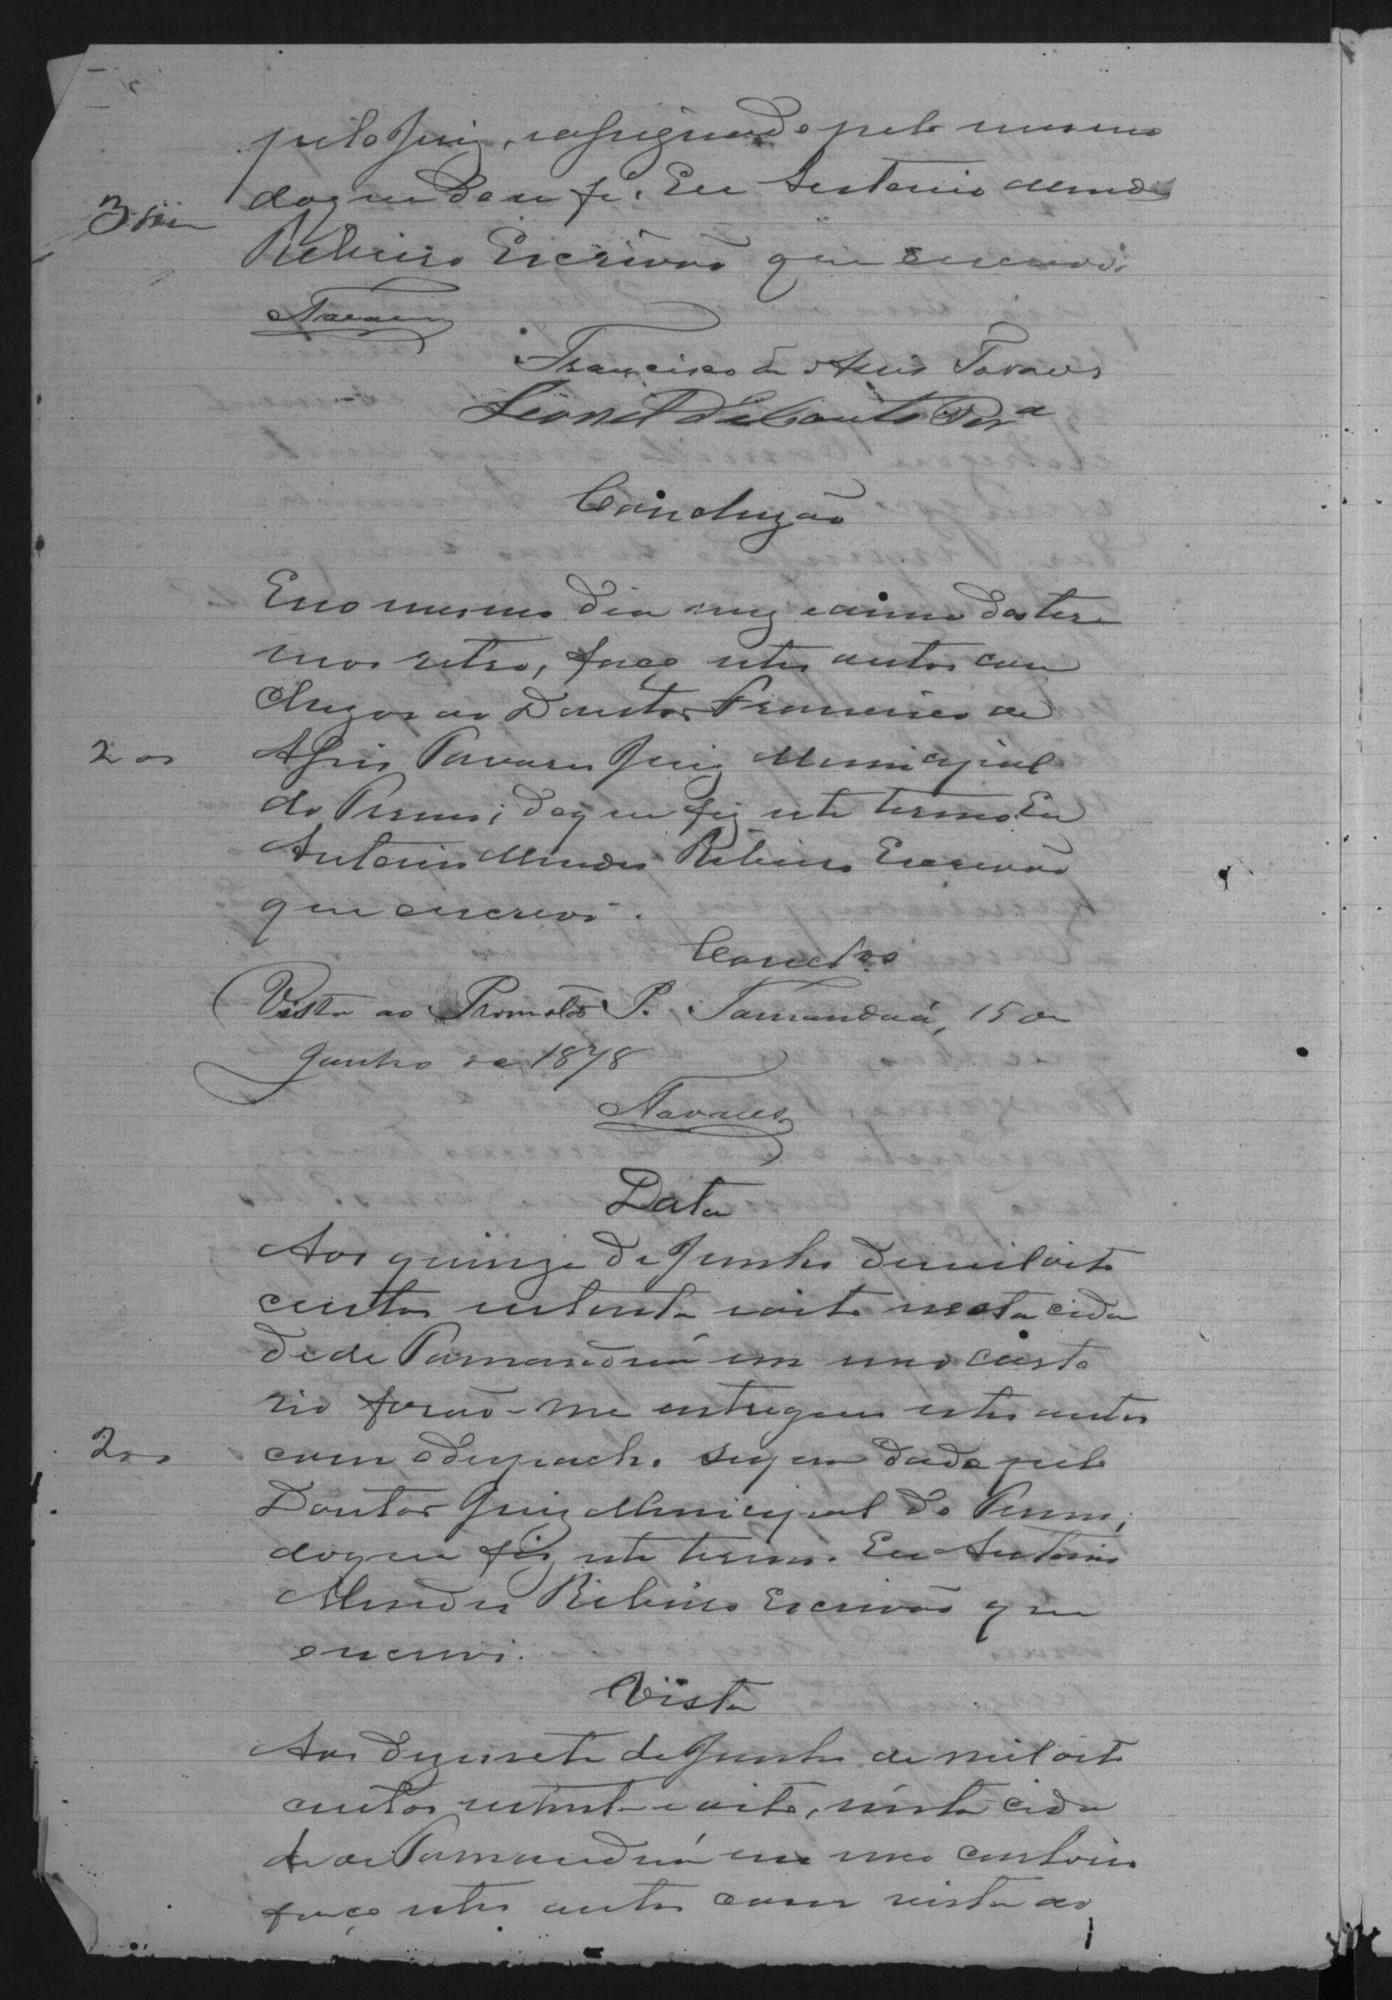 pelo Juiz, e assignado pelo mesmo
do que dou fé. Eu Antonio Mendes
Ribeiro Escrivão que escrevi.
Tavares
Francisco de Assis Tavares
Leonel do Couto Per.ª
Concluzão
E no mesmo dia mez e anno do ter
mo retro, faço estes autos con
cluzos ao Doutor Francisco de
200 Assis Tavares Juiz Municipal
do Termo; do que fiz este termo Eu
Antonio Mendes Ribeiro Escrivão
que escrevi.
Conclos
Vista ao Promotor P. Tamanduá, 15 de
Junho de 1878
Tavares
Data
Aos quinze de Junho de mil oito
centos setenta e oito nesta cida
de de Tamanduá em meo carto
rio forão-me entregues estes autos
200 com o despacho supra dado pelo
Doutor Juiz Municipal do Termo;
do que fiz este termo. Eu Antonio
Mendes Ribeiro Escrivão que
escrevi.
Vista
Aos dezesete de Junho de mil oito
centos setenta e oito, nesta cida
de de Tamanduá em meo cartorio
faço estes autos com vista ao